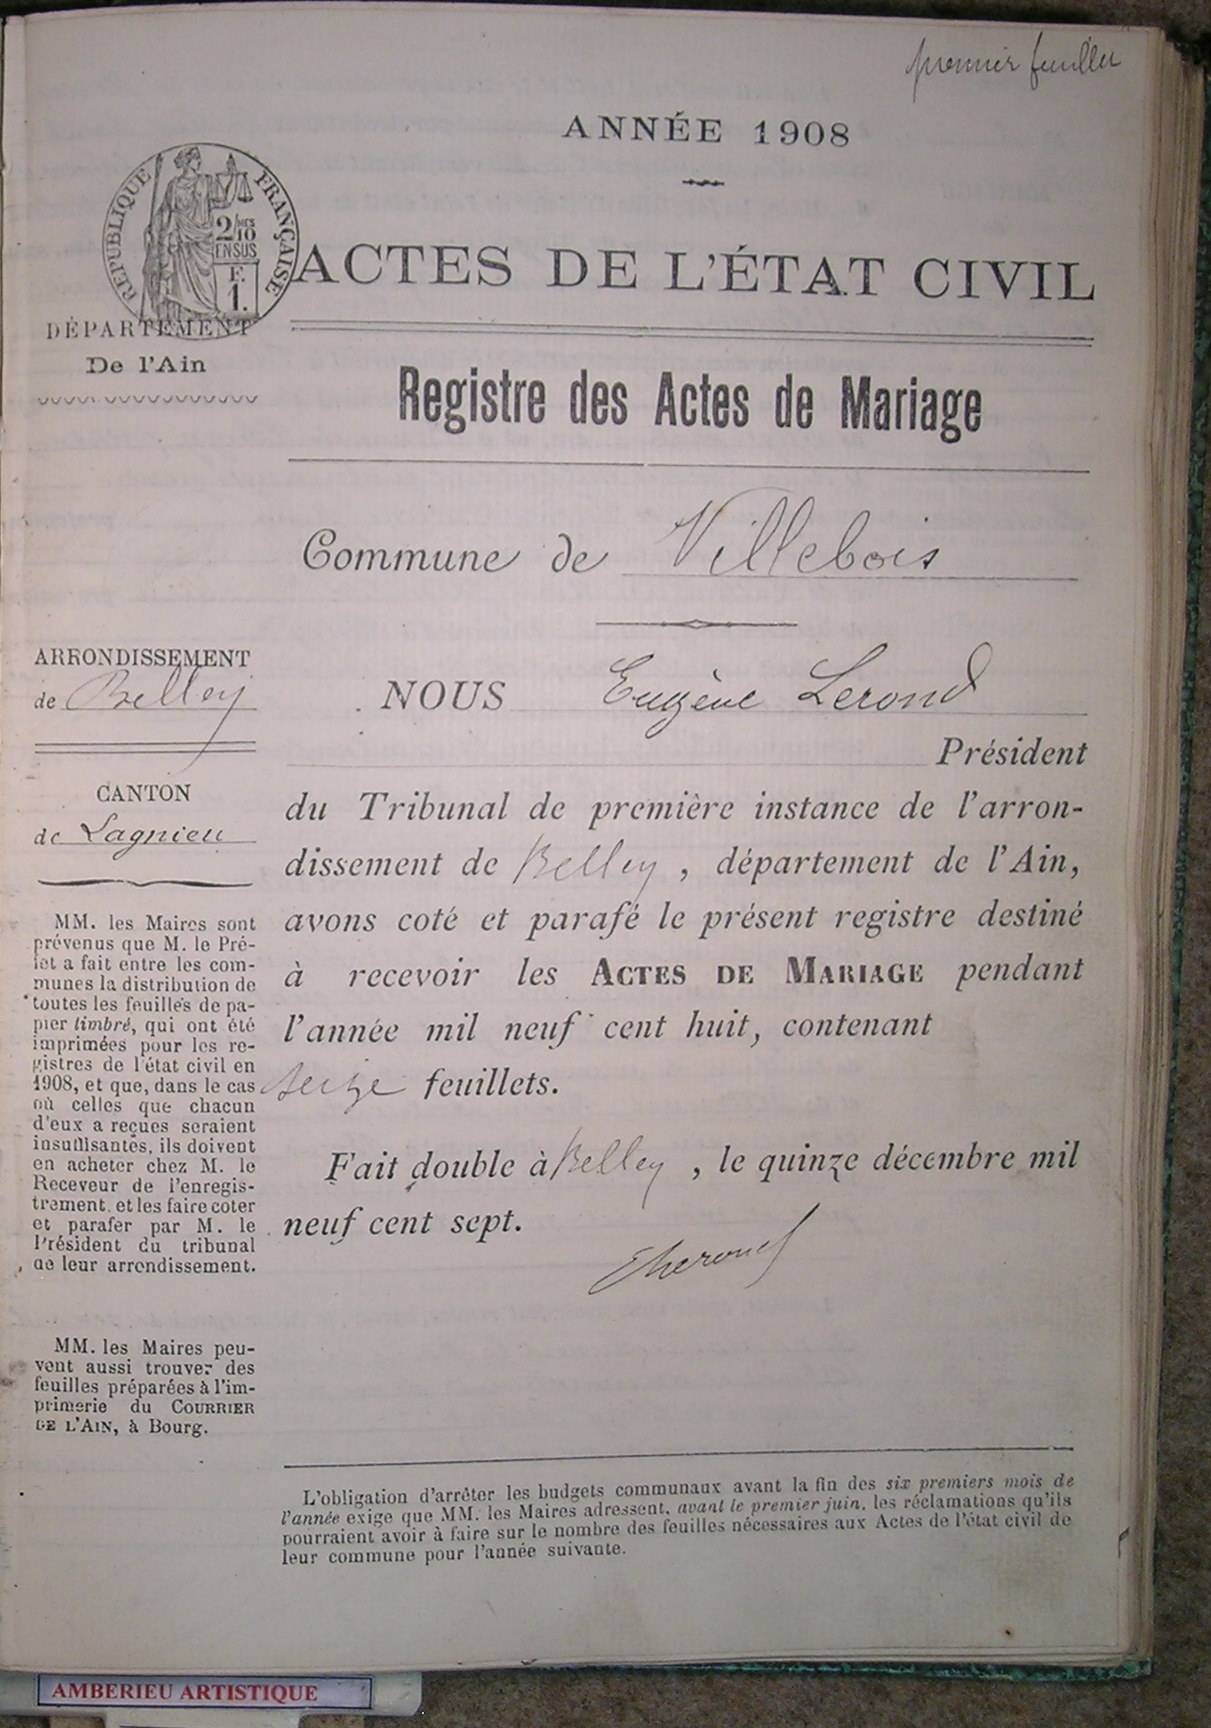 premier feuillet
ANNÉE 1908
RÉPUBLIQUE FRANÇAISE
2/10
EN SUS
F.
1.
ACTES DE L'ÉTAT CIVIL
DÉPARTEMENT
De l'Ain
Registre des Actes de Mariage
Commune de Villebois
ARRONDISSEMENT
de Belley
CANTON
de Lagnieu
MM. les Maires sont
prévenus que M. le Pré-
fet a fait entre les com-
munes la distribution de
toutes les feuilles de pa-
pier timbré, qui ont été
imprimées pour les re-
gistres de l'état civil en
1908, et que, dans le cas
où celles que chacun
d'eux a reçues seraient
insuffisantes, ils doivent
en acheter chez M. le
Receveur de l'enregis-
trement, et les faire coter
et parafer par M. le
Président du tribunal
de leur arrondissement.
MM. les Maires peu-
vent aussi trouver des
feuilles préparées à l'im-
primerie du COURRIER
DE L'AIN, à Bourg.
NOUS Eugène Lerond
Président
du Tribunal de première instance de l'arron-
dissement de Belley, département de l'Ain,
avons coté et parafé le présent registre destiné
à recevoir les ACTES DE MARIAGE pendant
l'année mil neuf cent huit, contenant
seize feuillets.
Fait double à Belley, le quinze décembre mil
neuf cent sept.
L'obligation d'arrêter les budgets communaux avant la fin des six premiers mois de
l'année exige que MM. les Maires adressent, avant le premier juin, les réclamations qu'ils
pourraient avoir à faire sur le nombre des feuilles nécessaires aux Actes de l'état civil de
leur commune pour l'année suivante.
AMBERIEU ARTISTIQUE